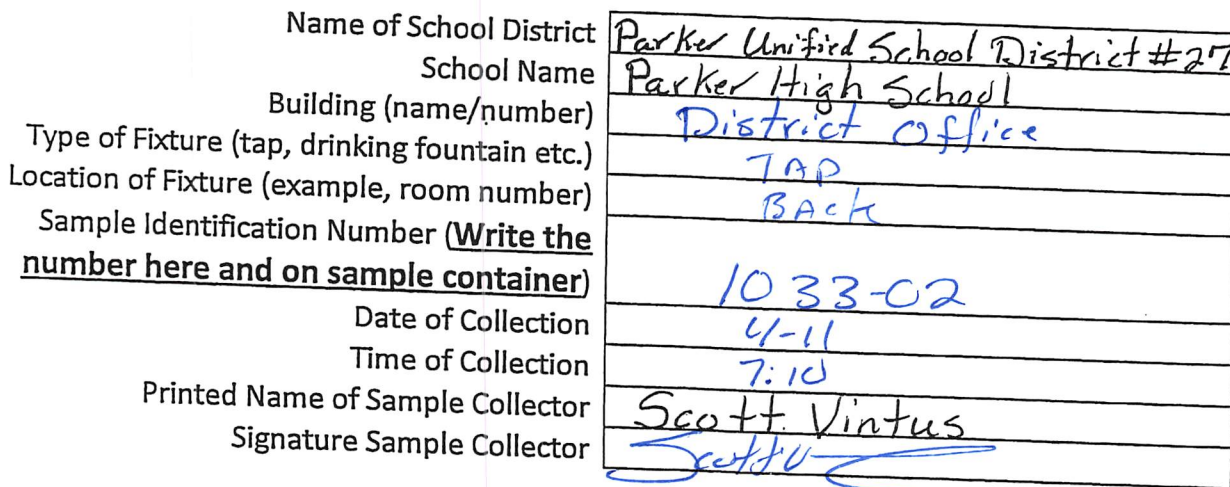 Name of School District Parker Unified School District #27
School Name Parker High School
Building (name/number) District Office
Type of Fixture (tap, drinking fountain etc.) TAP
Location of Fixture (example, room number) BACK
Sample Identification Number (Write the
number here and on sample container) 1033-02
Date of Collection 4-11
Time of Collection 7:10
Printed Name of Sample Collector Scott Vintus
Signature Sample Collector Scott V